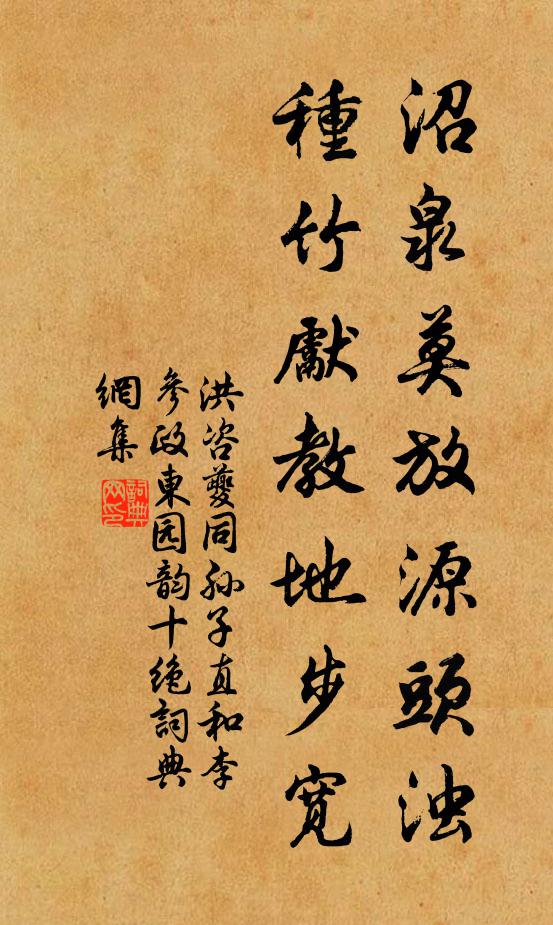 沼泉莫放源頭浊
種竹獻教地步寬
洪咨夔同孙子直和李
參政東园韵十绝詞典
網集
詞典
网印